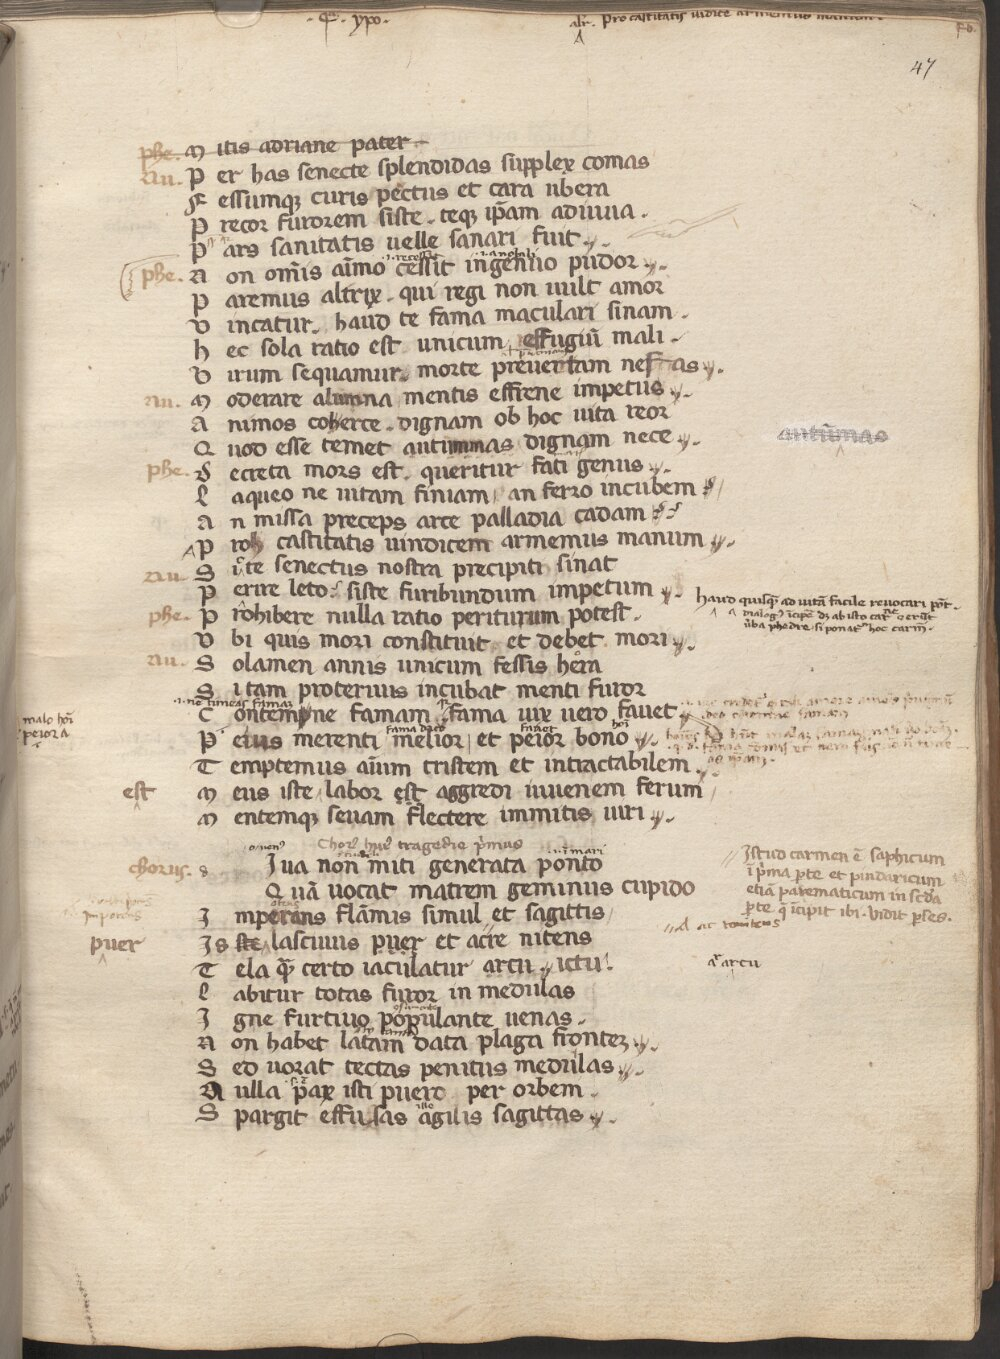 ypo.
47
phe. M itis adriane pater
nu. P er has senecte splendidas supplex comas
F essumq; curis pectus et cara ubera
P recor furorem siste. teq; ip̄am adiuua.
P ars sanitatis uelle sanari fuit
phe. N on om̄is aīmo cessit ingenuo pudor
P aremus altrix. qui regi non uult amor
V incatur. haud te fama maculari sinam.
H ec sola ratio est unicum effugiū mali.
V irum sequamur. morte preuertam nefas
nu. M oderare alumna mentis effrene impetus
A nimos coherce. dignam ob hoc uita reor
Q uod esse temet autumas dignam nece
autūmas
phe. D ecreta mors est. queritur fati genus
L aqueo ne uitam finiam, an ferro incubem
A n missa preceps arce palladia cadam
P roh castitatis uindicem armemus manum
nu. S ic te senectus nostra precipiti sinat
P erire leto. siste furibundum impetum
haud quisq̄ ad uitā facile reuocari pōt.
phe. P rohibere nulla ratio periturum potest.
V bi quis mori constituit et debet mori
nu. S olamen annis unicum fessis hera
S i tam proteruus incubat menti furor
C ontempne famam fama uix uero fauet
malo hoī
peiora
P eius merenti melior, et peior bono
T emptemus aīum tristem et intractabilem
est
M eus iste labor est aggredi iuuenem ferum
M entemq; seuam flectere immitis uiri
chorus. D Iua non miti generata ponto
Q uā uocat matrem geminus cupido
Istud carmen ē saphicum
ī pr̄ma parte et pindaricum
etiā parematicum in scd̄a
parte q̄ īcipit ibi. vidit perses.
I mperans flāmis simul et sagittis
puer
Iste lasciuus puer et acre nitens
T ela q̄ certo iaculatur arcu. ictu.
arcu
L abitur totas furor in medulas
I gne furtiuo populante uenas.
N on habet latam data plaga frontez
S ed uorat tectas penitus medulas
N ulla pax isti puero per orbem
S pargit effusas agilis sagittas